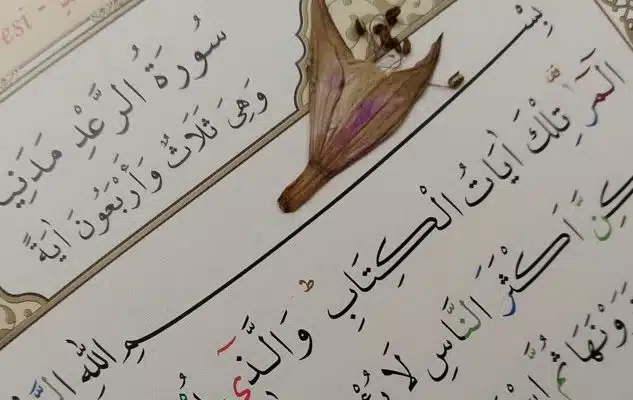 esi -
سُورَةُ الرَّعْدِ
وَهِيَ ثَلَاثٌ وَأَرْبَعُونَ اٰيَةً
بِسْمِ اللّٰهِ
الٓمٓرٰ تِلْكَ اٰيَاتُ الْكِتَابِ وَالَّذٓى
كِنَّ اَكْثَرَ النَّاسِ لَا
وْنَهَا ثُمَّ